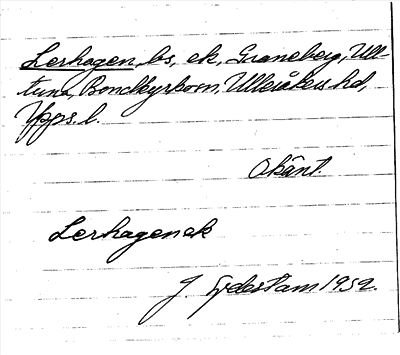 Lerhagen, bs, ek, Graneberg, Ull-
tuna, Bondkyrkosn, Ulleråkers hd,
Upps. l.
Okänt.
Lerhagen ek
J. Sydestam 1952.